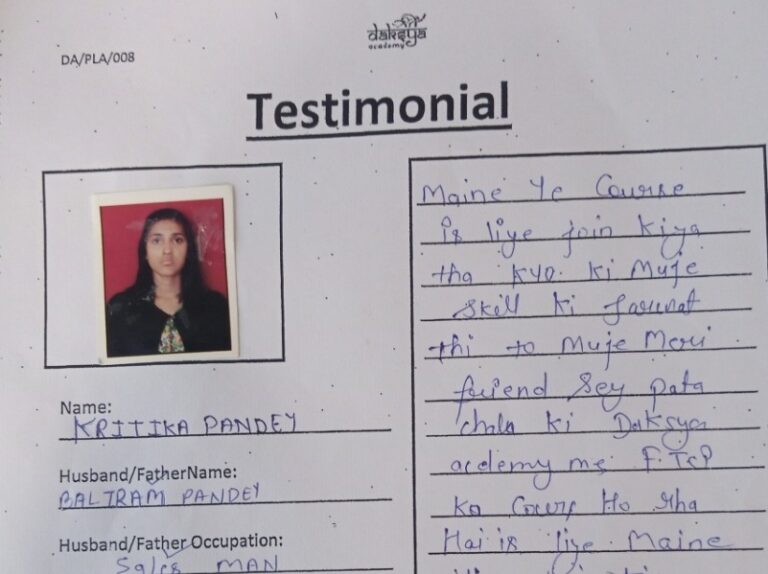 daksya
academy
DA/PLA/008
Testimonial
Name:
KRITIKA PANDEY
Husband/FatherName:
BALIRAM PANDEY
Husband/Father Occupation:
Sales MAN
Maine Ye Course
is liye join kiya
tha kyo. ki Muje
Skill ki jarurat
thi to Muje Meri
friend Sey pata
chala ki Daksya
acdemy me F.TCP
ka Cours Ho rha
Hai is liye Maine